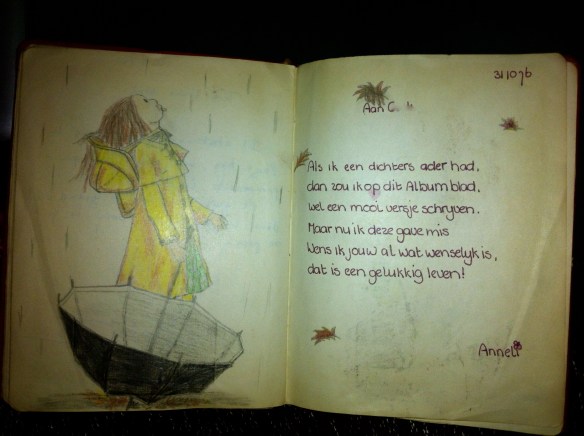 311076
Aan
Als ik een dichters ader had,
dan zou ik op dit Albumblad,
wel een mooi versje schryven.
Maar nu ik deze gave mis
Wens ik jouw al wat wenselyk is,
dat is een gelukkig leven!
Anneli